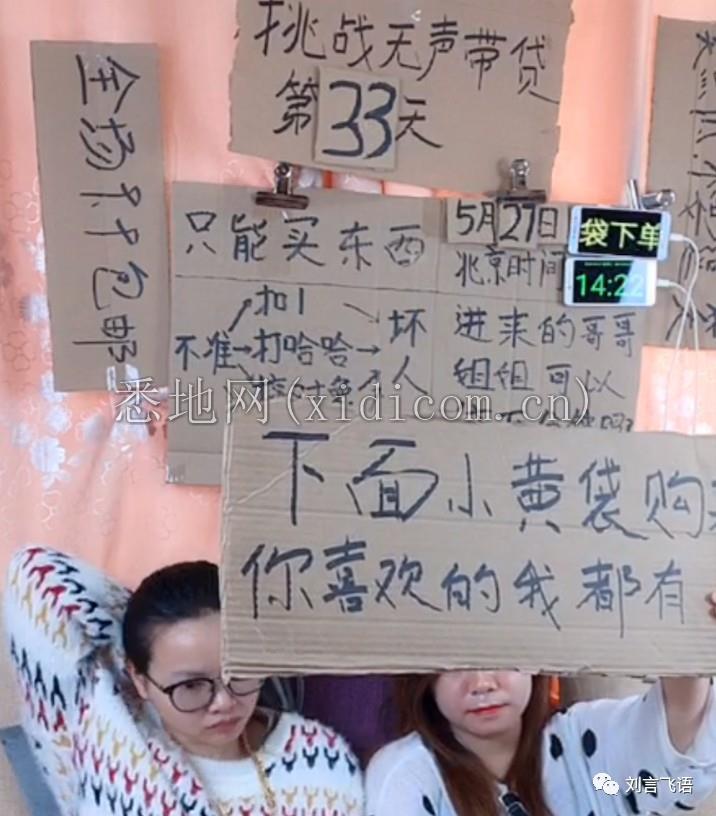 挑战无声带贷
第33天
全场9.9包邮
只能买东西
5月27日
北京时间
袋下单
14:22
扣1
不准→打哈哈→坏人
进来的哥哥
姐姐可以
悉地网(xidicom.cn)
下面小黄袋购
你喜欢的我都有
刘言飞语